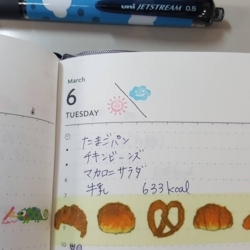 uni JETSTREAM 0.5
March
6
TUESDAY
たまごパン
チキンビーンズ
マカロニサラダ
牛乳 633kcal